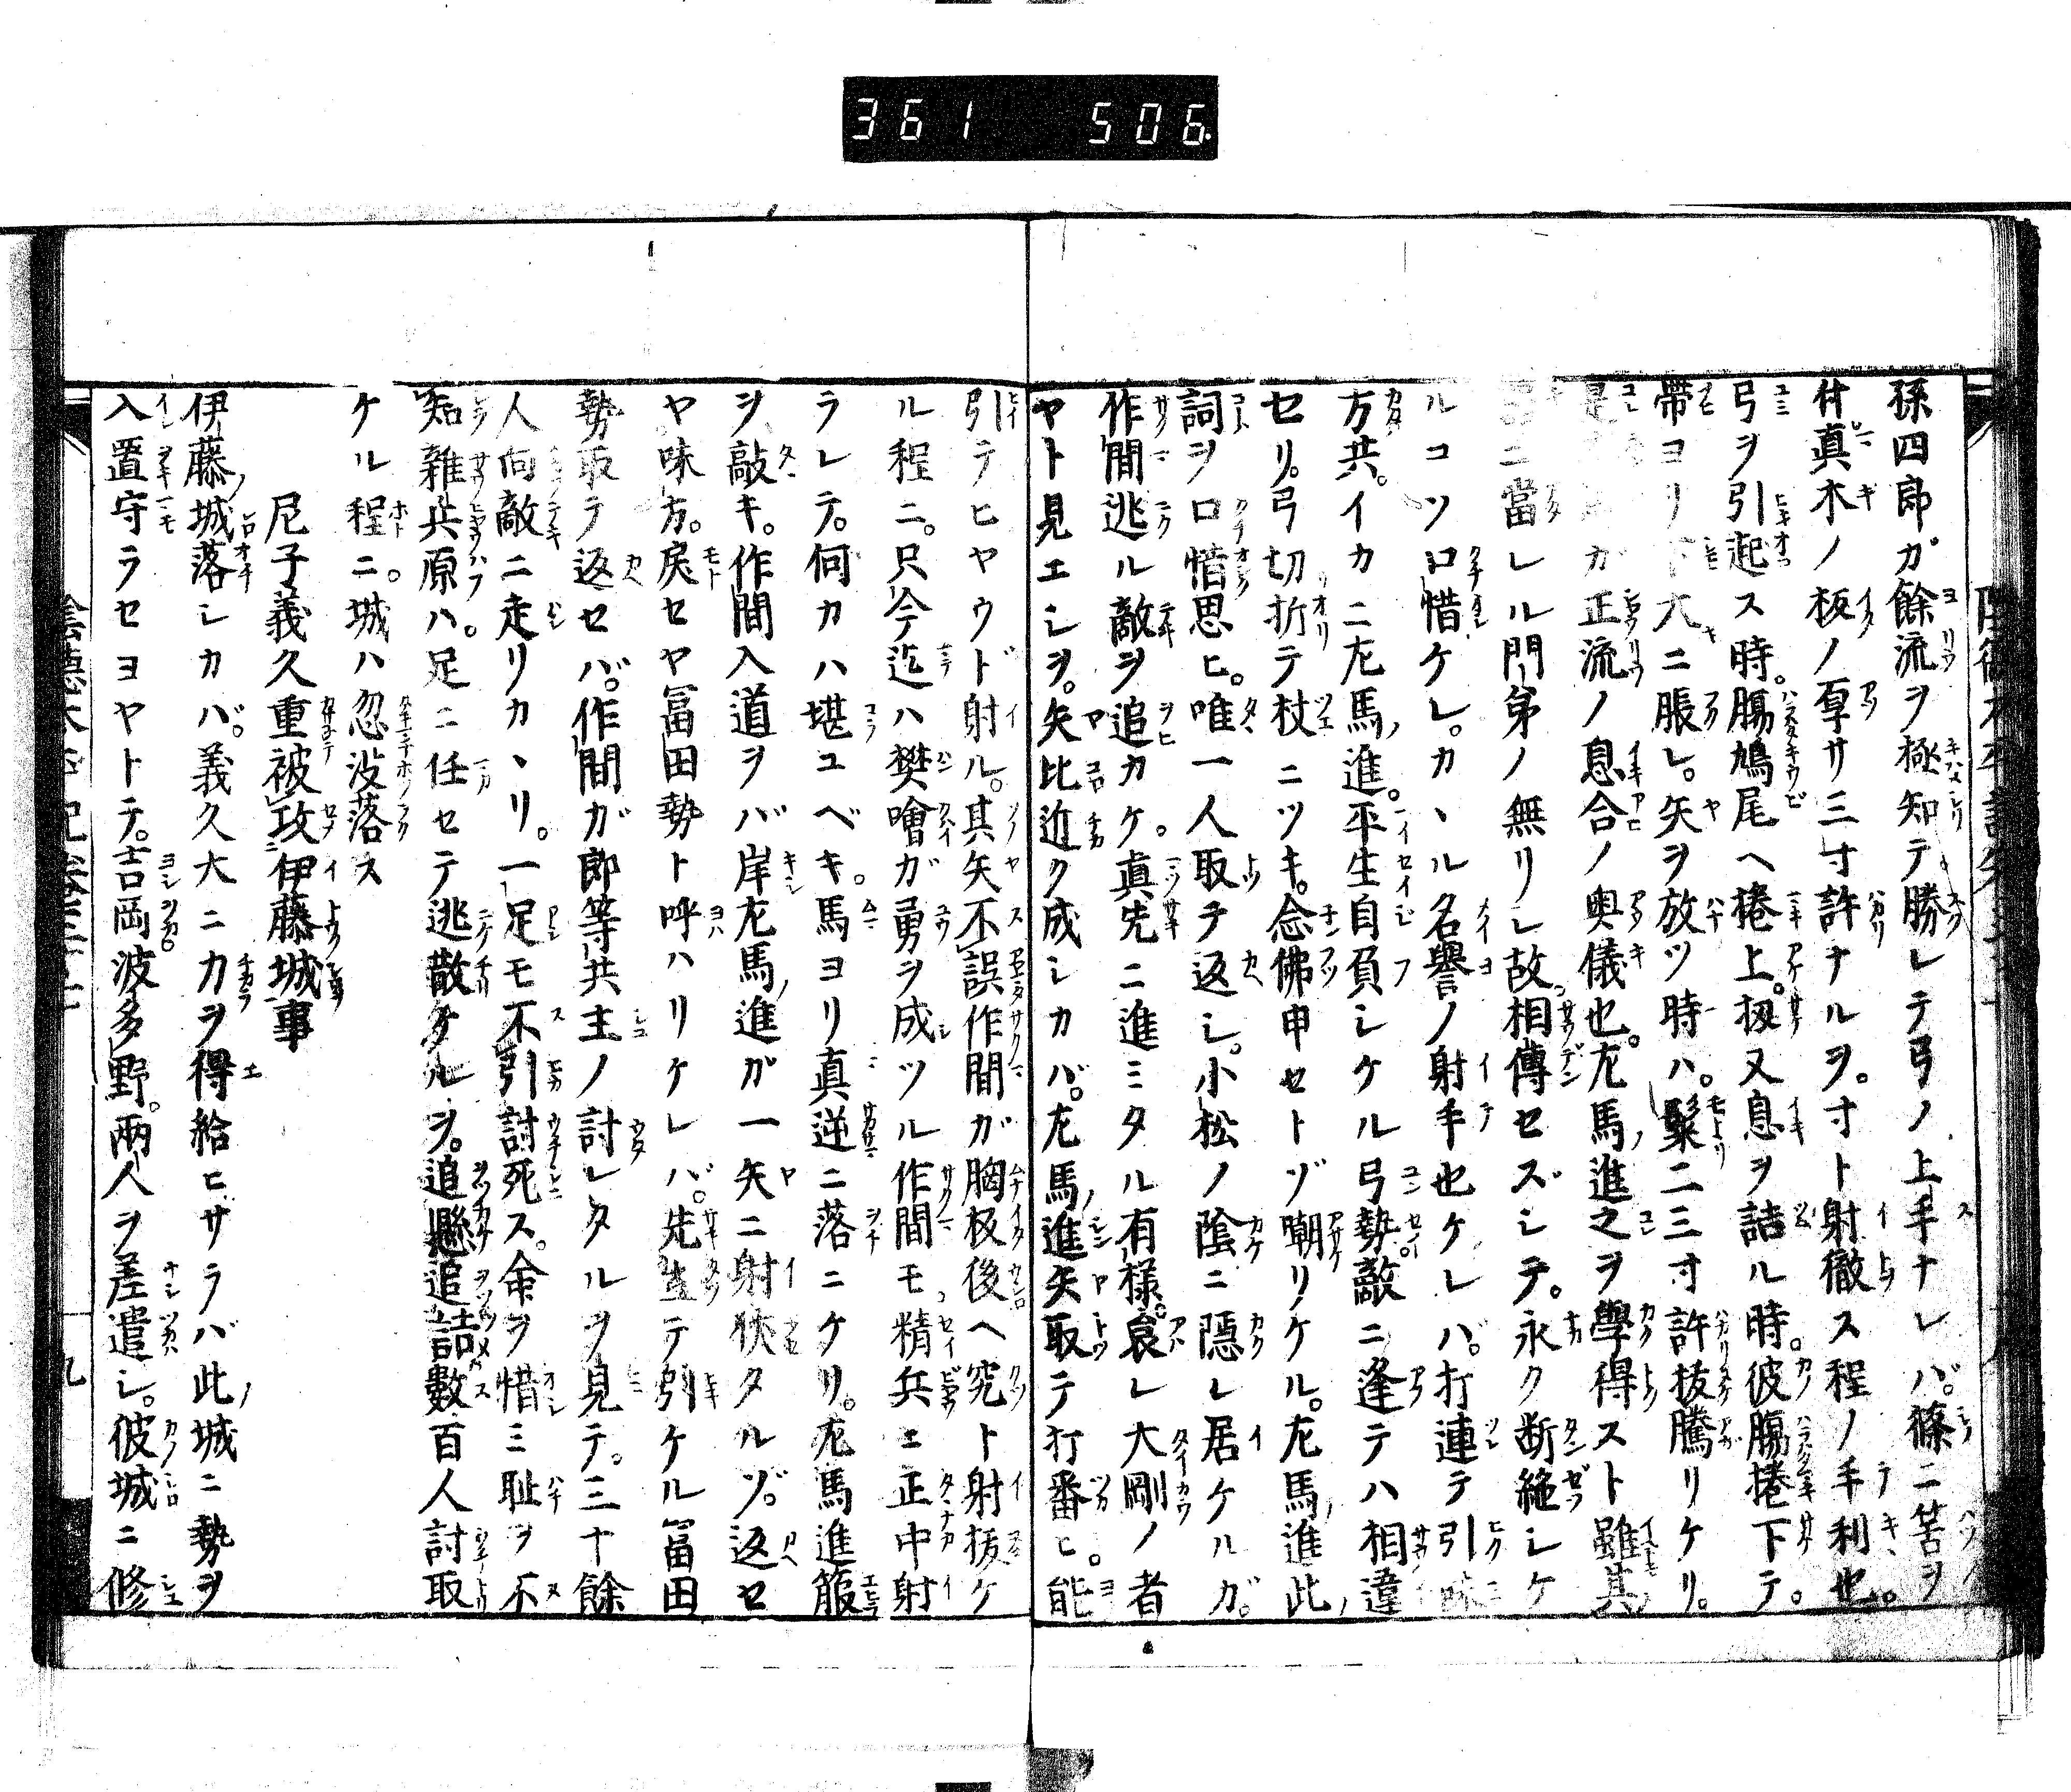 361 506
孫四郎ガ餘流ヲ極知テ。勝レテ弓ノ上手ナレバ。篠ニ筈ヲ
付真木ノ板ノ厚サ三寸許ナルヲ。寸ト射徹ス程ノ手利也。
弓ヲ引起ス時。腸鳩尾ヘ捲上。扨又息ヲ詰ル時。彼腸捲下テ。
帯ヨリ下大ニ脹レ。矢ヲ放ツ時ハ。鬢二三寸許抜騰リケリ。
是ガ正流ノ息合ノ奥儀也。左馬進之ヲ學得スト雖其
ニ當レル門弟ノ無リシ故。相傳セズシテ。永ク断絶シケ
ルコソ口惜ケレ。カヽル名譽ノ射手也ケレバ。打連テ引
方共。イカニ左馬進。平生自負シケル弓勢敵ニ逢テハ相違
セリ。弓切折テ杖ニツキ。念佛申セトゾ嘲リケル。左馬進此
詞ヲ口惜思ヒ。唯一人取テ返シ。小松ノ陰ニ隠レ居ケルガ。
作間逃ル敵ヲ追カケ。真先ニ進ミタル有様。哀レ大剛ノ者
ヤト見エシヲ。矢比近ク成シカバ。左馬進矢取テ打番ヒ。能
引テヒヤウド射ル。其矢不誤作間ガ胸板後ヘ究ト射抜ケ
ル程ニ。只今迄ハ樊噲ガ勇ヲ成ツル作間モ精兵ニ正中射
ラレテ。何カハ堪ユベキ。馬ヨリ真逆ニ落ニケリ。左馬進箙
ヲ敲キ。作間入道ヲバ岸左馬進ガ一矢ニ射伏タルゾ。返セ
ヤ味方。戻セヤ冨田勢ト呼ハリケレバ。先立テ引ケル冨田
勢取テ返セバ。作間ガ郎等共主ノ討レタルヲ見テ。三十餘
人向敵ニ走リカヽリ。一足モ不引討死ス。命ヲ惜ミ耻ヲ不
知雑兵原ハ。足ニ任セテ逃散ケルヲ。追懸追詰數百人討取
ケル程ニ。城ハ忽没落ス
尼子義久重被攻伊藤城事
伊藤城落シカバ。義久大ニ力ヲ得給ヒサラバ此城ニ勢ヲ
入置守ラセヨヤトテ。吉岡波多野。兩人ヲ差遣シ。彼城ニ修
九